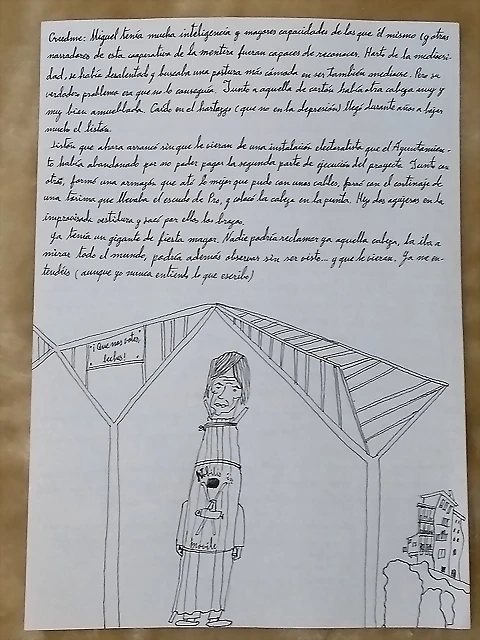 Creedme: Miguel tenía mucha inteligencia y mayores capacidades de las que él mismo (y otros
narradores de esta cooperativa de la mentira fueran capaces de reconocer. Harto de la mediocri-
dad, se había desalentado y buscaba una postura más cómoda en ser también mediocre. Pero su
verdadero problema era que no lo conseguía. Junto a aquella de cartón había otra cabeza muy y
muy bien amueblada. Caído en el hartazgo (que no en la depresión) llegó durante años a bajar
mucho el listón.
Listón que ahora arrancó sin que le vieran de una instalación electoralista que el Ayuntamien-
to había abandonado por no poder pagar la segunda parte de ejecución del proyecto. Junto con
otros, formó una armazón que ató lo mejor que pudo con unos cables, forró con el cortinaje de
una tarima que llevaba el escudo de Pro, y colocó la cabeza en la punta. Hizo dos agujeros en la
improvisada vestidura y sacó por ellos los brazos.
Ya tenía un gigante de fiesta mayor. Nadie podría reclamar ya aquella cabeza, la iba a
mirar todo el mundo, podría además observar sin ser visto... y que le vieran. Ya me en-
tendéis (aunque yo nunca entiendo lo que escribo)
¡Que nos votes,
leches!
mobile